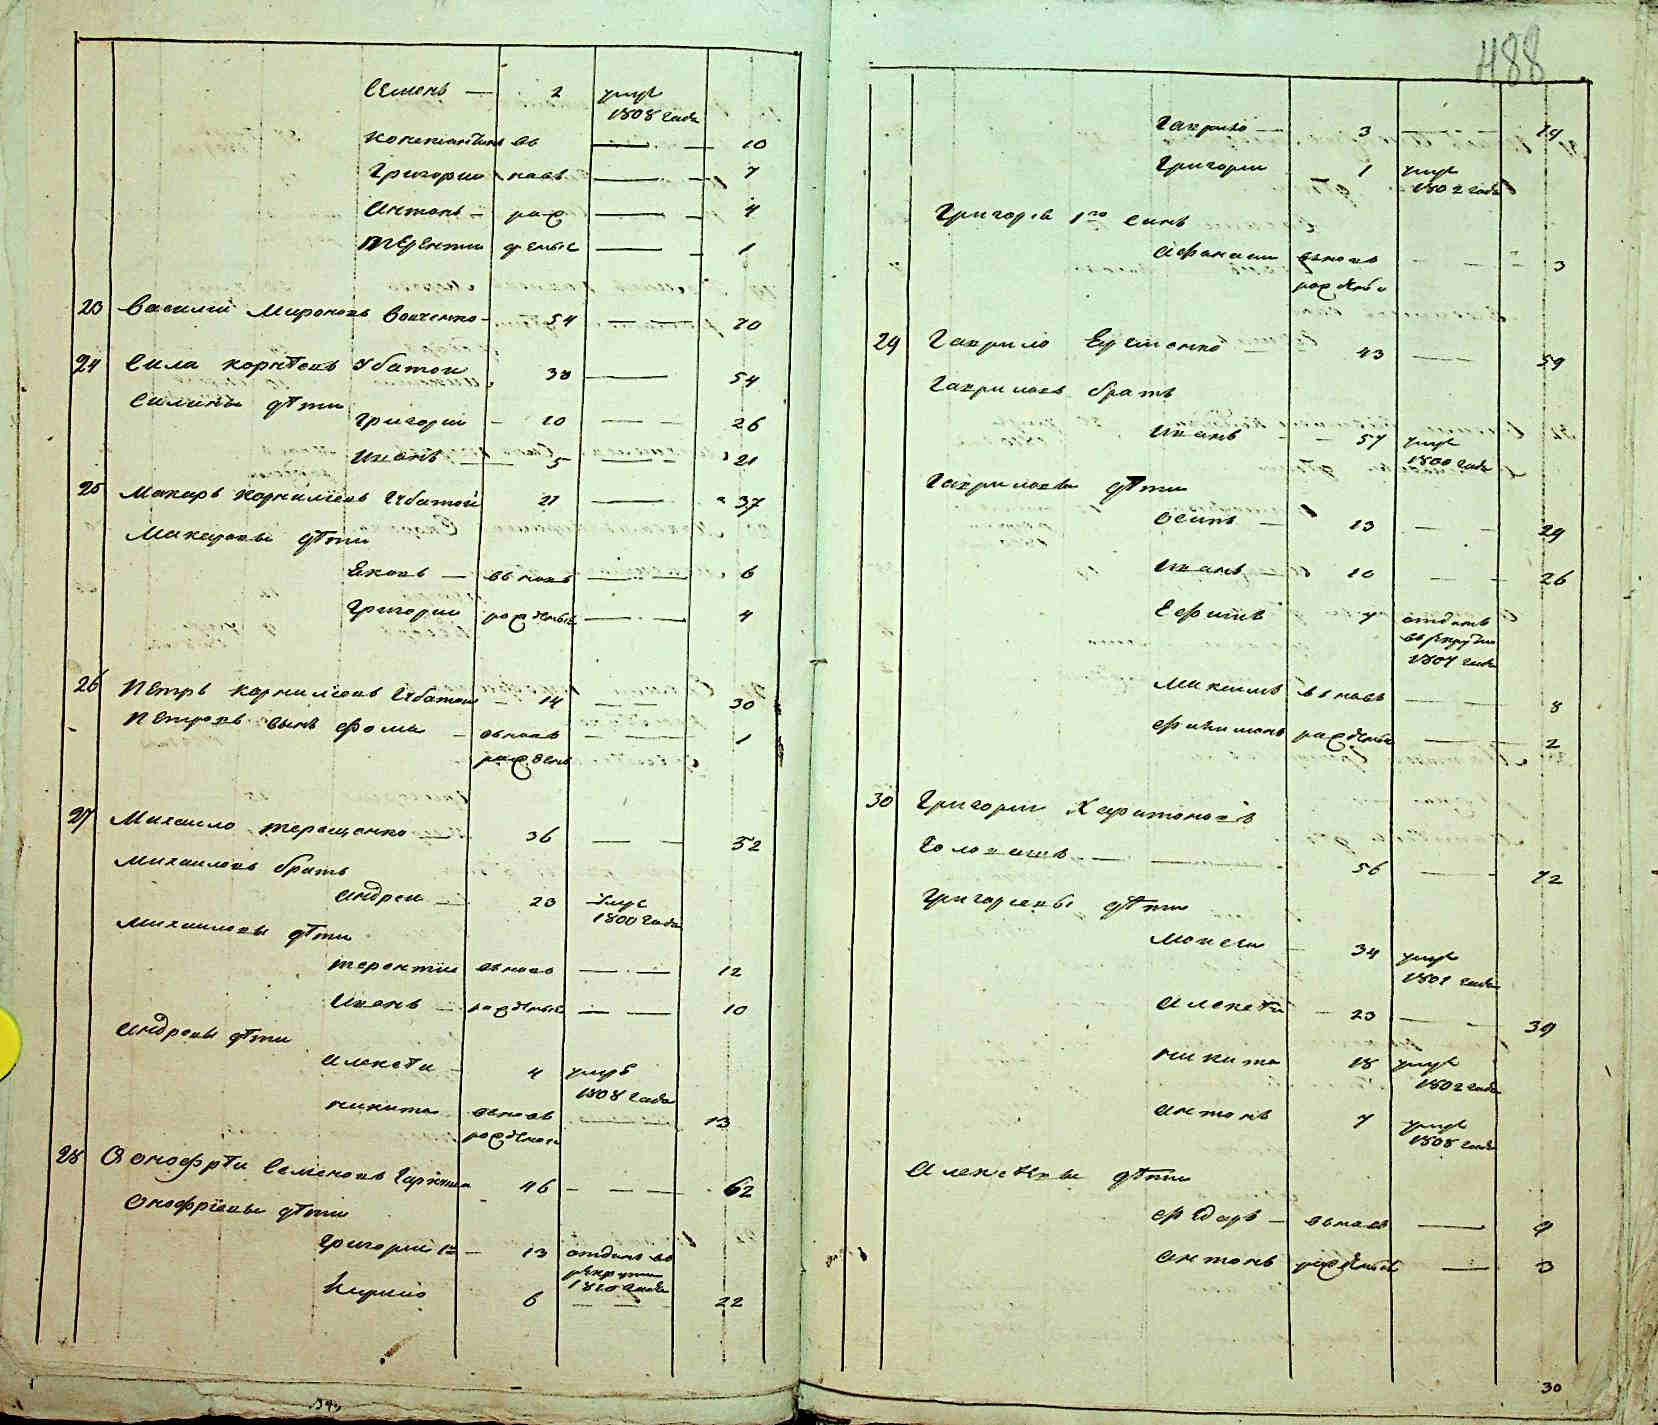 488
Семенъ — 2 умре
1808 года
Константинъ въ — 10
Григории новъ — 7
Антонъ — рож — 4
Терентии деные — 1
23 Василий Мироновъ — 54 — 70
24 Сила Корнѣевъ Убатои 38 — 54
Силины дѣти
Григории — 10 — 26
Иванъ — 5 — 21
25 Макаръ Корнилиевъ Губатой 21 — 37
Макаровы дѣти
Яковъ — вновь — 6
Григории рожденые — 4
26 Петръ Корнилиевъ Губатои — 14 — 30
Петровъ сынъ Фома — вновь — 1
рожденъ
27 Михаило Терещенко — 36 — 52
Михаиловъ братъ
Андреи — 20 умре
1800 года
Михаиловы дѣти
Терентии вновь — 12
Иванъ — рожденые — 10
Андреевы дѣти
Алексѣи — 4 умре
1808 года
Никита вновь — 13
рожденои
28 Онофрѣи Семеновъ 46 — 62
Онофрiевы дѣти
Григории 1й — 13 отданъ въ
рекруты
1810 года
Кирило 6 — 22
Гаврило — 3 — 19
Григории 1 умре
1802 года
Григорiя 1го сынъ
Афанасии вновь — 3
рожденъ
29 Гаврило Ефименко 43 — 59
Гавриловъ братъ
Иванъ — 57 умре
1800 года
Гавриловы дѣти
Осипъ — 13 — 29
Иванъ — 10 — 26
Ефимъ 7 отданъ
въ рекруты
1807 года
Максимъ вновь — 8
Филимонъ рожденые — 2
30 Григории Харитоновъ
56 — 72
Григориевы дѣти
Моисеи — 34 умре
1801 года
Алексѣи — 23 — 39
Никита 18 умре
1802 года
Антонъ 7 умре
1808 года
Алексѣевы дѣти
Федоръ — вновь — 9
Антонъ рожденые — 3
30